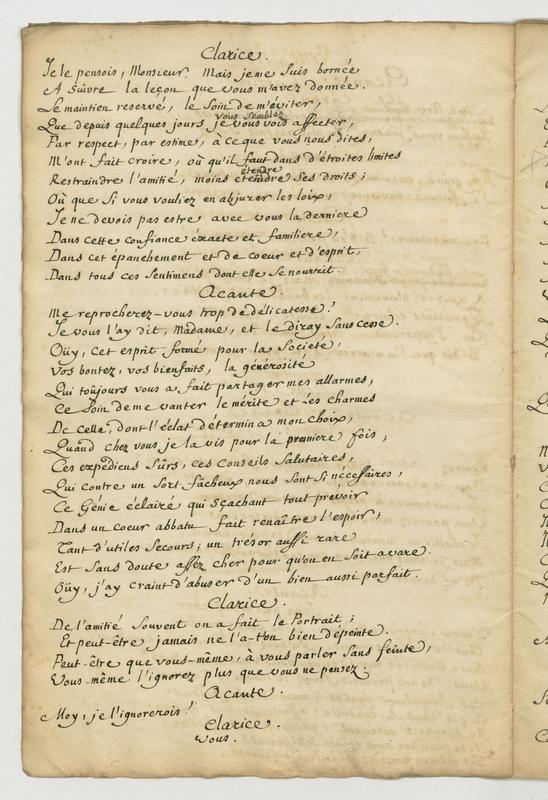 Clarice.
Je le pensois, Monsieur. Mais je me suis bornée
A suivre la leçon que vous m'avez donnée.
Le maintien reservé, le soin de m'éviter,
vous semblez
Que depuis quelques jours je vous vois affecter,
Par respect, par estime, à ce que vous nous dites,
M'ont fait croire, où qu'il faut dans d'étroites limites
étendre
Restraindre l'amitié, moins etendre ses droits;
Où que si vous vouliez en abjurer les loix,
Je ne devois pas estre avec vous la derniere
Dans cette confiance éxacte et familiere,
Dans cet épanchement et de coeur et d'esprit,
Dans tous ces sentimens dont elle se nourrit.
Acante.
Me reprocherez-vous trop de délicatesse?
Je vous l'ay dit, Madame, et le diray sans cesse.
Oüy, cet esprit formé pour la Societé,
Vos bontez, vos bienfaits, la générosité
Qui toûjours vous a fait partager mes allarmes,
Ce soin de me vanter le mérite et les charmes
De celle, dont l'éclat détermina mon choix,
Quand chez vous je la vis pour la premiere fois;
Ces expédiens sûrs, ces conseils salutaires,
Qui contre un sort fâcheux nous sont si nécessaires,
Ce Génie éclairé qui sçachant tout prévoir
Dans un coeur abbatu fait renaître l'espoir,
Tant d'utiles secours; un tresor aussi rare
Est sans doute assez cher pour qu'on en soit avare.
Oüy, j'ay craint d'abuser d'un bien aussi parfait.
Clarice.
De l'amitié souvent on a fait le Portrait;
Et peut-être jamais ne l'a-t'on bien dépeinte.
Peut-être que vous-même, à vous parler sans feinte,
Vous-même l'ignorez plus que vous ne pensez.
Acante.
Moy, je l'ignorerois!
Clarice.
Vous.